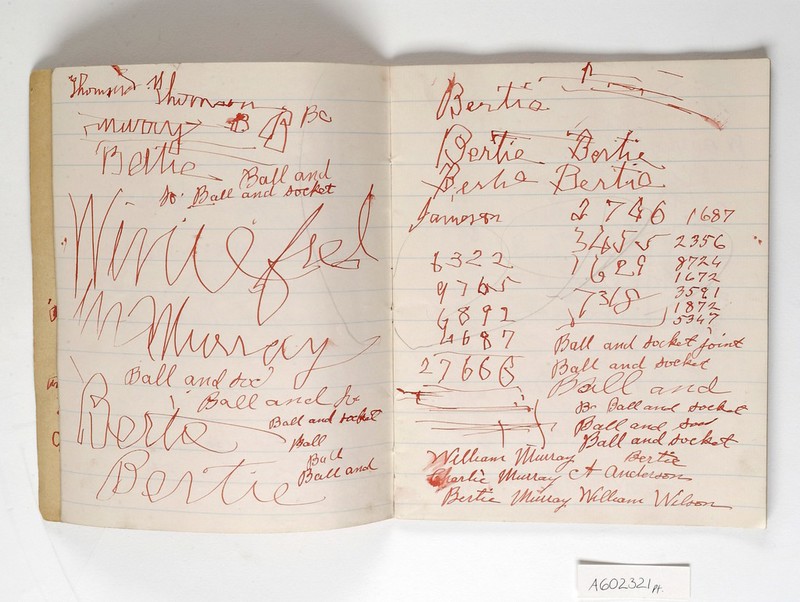 Thomson Thomson
Murray B B Be
Bertie
Ball and
Ball and socket
Winniefred
M Murray
Ball and soc
Ball and So
Berte
Ball and socket
Ball
Ball
Ball and
Bertie
Bertie
Bertie Bertie
Bertie Bertie
Jameson 2746 1687
3455 2356
6322 1629 8724
9765 1672
7348 3591
4892 1872
4687 5347
27666
Ball and socket joint
Ball and socket
Ball and
Bo Ball and socket
Ball and soc
Ball and socket
William Murray Bertie
Charlie Murray A Anderson
Bertie Murray William Wilson
A602321 pt.